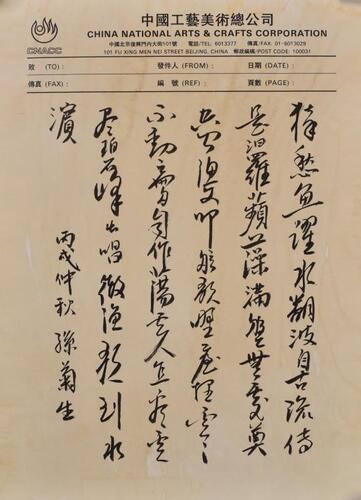 中國工藝美術總公司
CHINA NATIONAL ARTS & CRAFTS CORPORATION
CNACC
中國北京復興門內大街101號 電話/TEL: 6013377 傳真/FAX: 01-6013029
101 FU XING MEN NEI STREET BEIJING, CHINA 郵政編碼/POST CODE: 100031
致 (TO): 發件人 (FROM): 日期 (DATE):
傳真 (FAX): 編號 (REF): 頁數 (PAGE):
猿愁魚躍水翻波自古流傳
是汨羅蘋藻滿盤無處奠
空聞漁父叩舷歌
不動 句作 人
碧峰 唱 漁歌到水
濱
丙戌仲秋 孫菊生